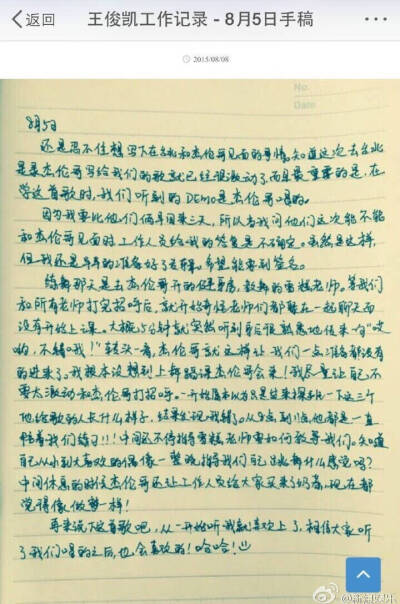 返回
王俊凯工作记录 - 8月5日手稿
2015/08/08
No.
Date
8月5日
还是忍不住想写下在台北和杰伦哥见面的事情。知道这次去台北
是录杰伦哥写给我们的歌就已经很激动了,而且最重要的是,在
学这首歌时,我们听到的DEMO是杰伦哥唱的。
因为我要比他们俩早回来三天,所以当我问他们这次能不能
和杰伦哥见面时工作人员给我的答复是不确定。虽然是这样,
但我还是早早的准备好了专辑,希望能要到签名。
练舞那天是去杰伦哥开的健身房,教舞的老师。等我们
和所有老师打完招呼后,就开始奇怪老师们都聚在一起聊天而
没有开始上课。大概5分钟就突然听到背后很熟悉地传来一句“哎
哟,不错哦!”转头一看,杰伦哥就这样让我们一点准备都没有
的进来了。我根本没想到上舞蹈课杰伦哥会来!我尽量让自己不
要太激动和杰伦哥打招呼。一开始原本以为只是过来探班一下这三个
他给歌的人长什么样子,结果发现,我错了。从 到 他都是一直
陪着我们练习!!!中间还不停指导老师要如何教导我们。知道
自己从小到大喜欢的偶像一整晚指导我们自己跳舞什么感觉吗?
中间休息的时候杰伦哥还让工作人员给大家买来了奶茶,现在都
觉得像做梦一样!
再来说下这首歌吧,从一开始听我就喜欢上了,相信大家听
了我们唱的之后,也会喜欢的!哈哈!